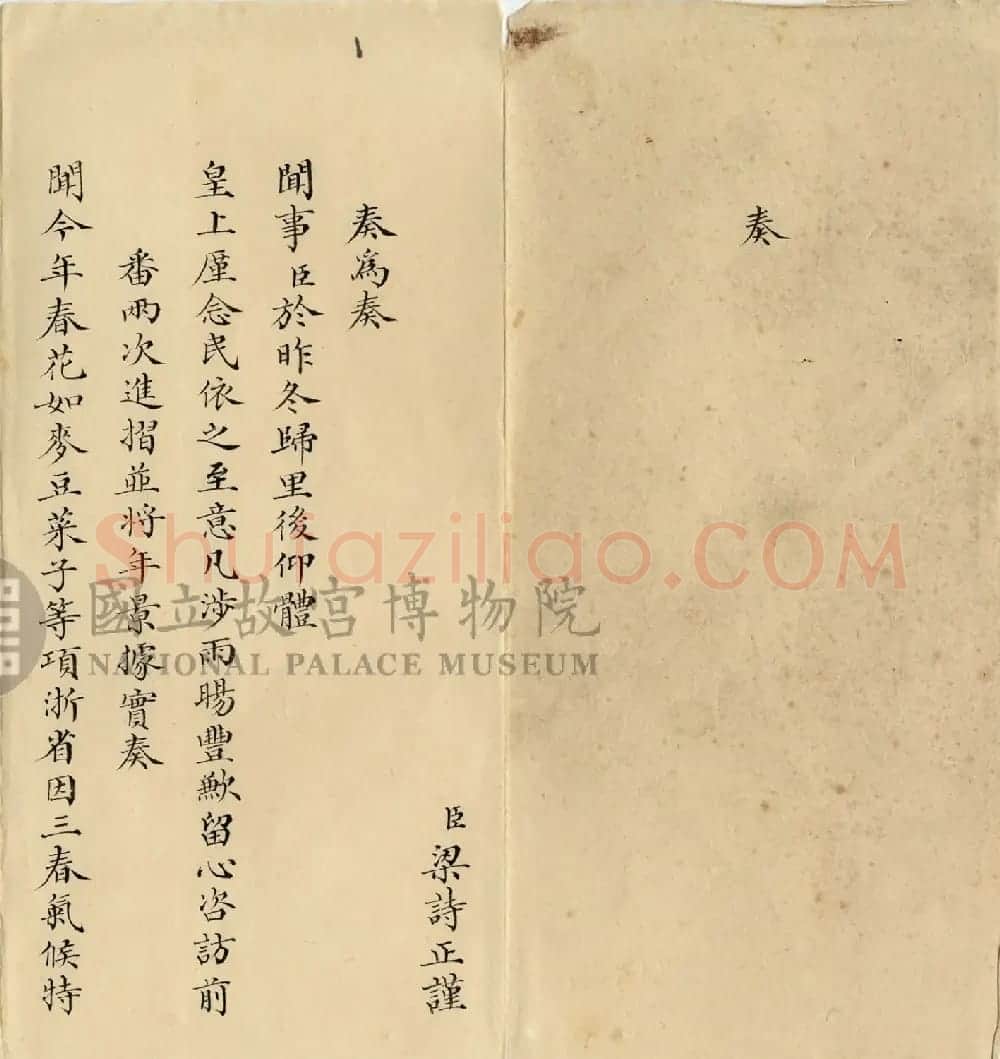 奏
臣梁詩正謹
奏爲奏
聞事臣於昨冬歸里後仰體
皇上厪念民依之至意凡涉雨暘豐歉留心咨訪前
番兩次進摺並將年景據實奏
聞今年春花如麥豆菜子等項浙省因三春氣候特
Shufaziliao.COM
國立故宮博物院
NATIONAL PALACE MUSEUM